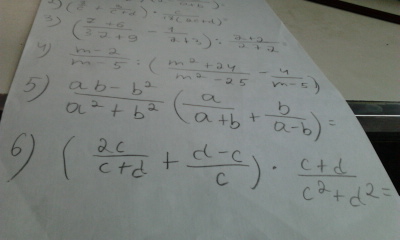 3) (z+6 / 3z+9 - 1 / z+3) : z+2 / z+2
4) m-2 / m-5 : (m²+24 / m²-25 - 4 / m-5)
5) ab-b² / a²+b² (a / a+b + b / a-b) =
6) (2c / c+d + d-c / c) · c+d / c²+d² =